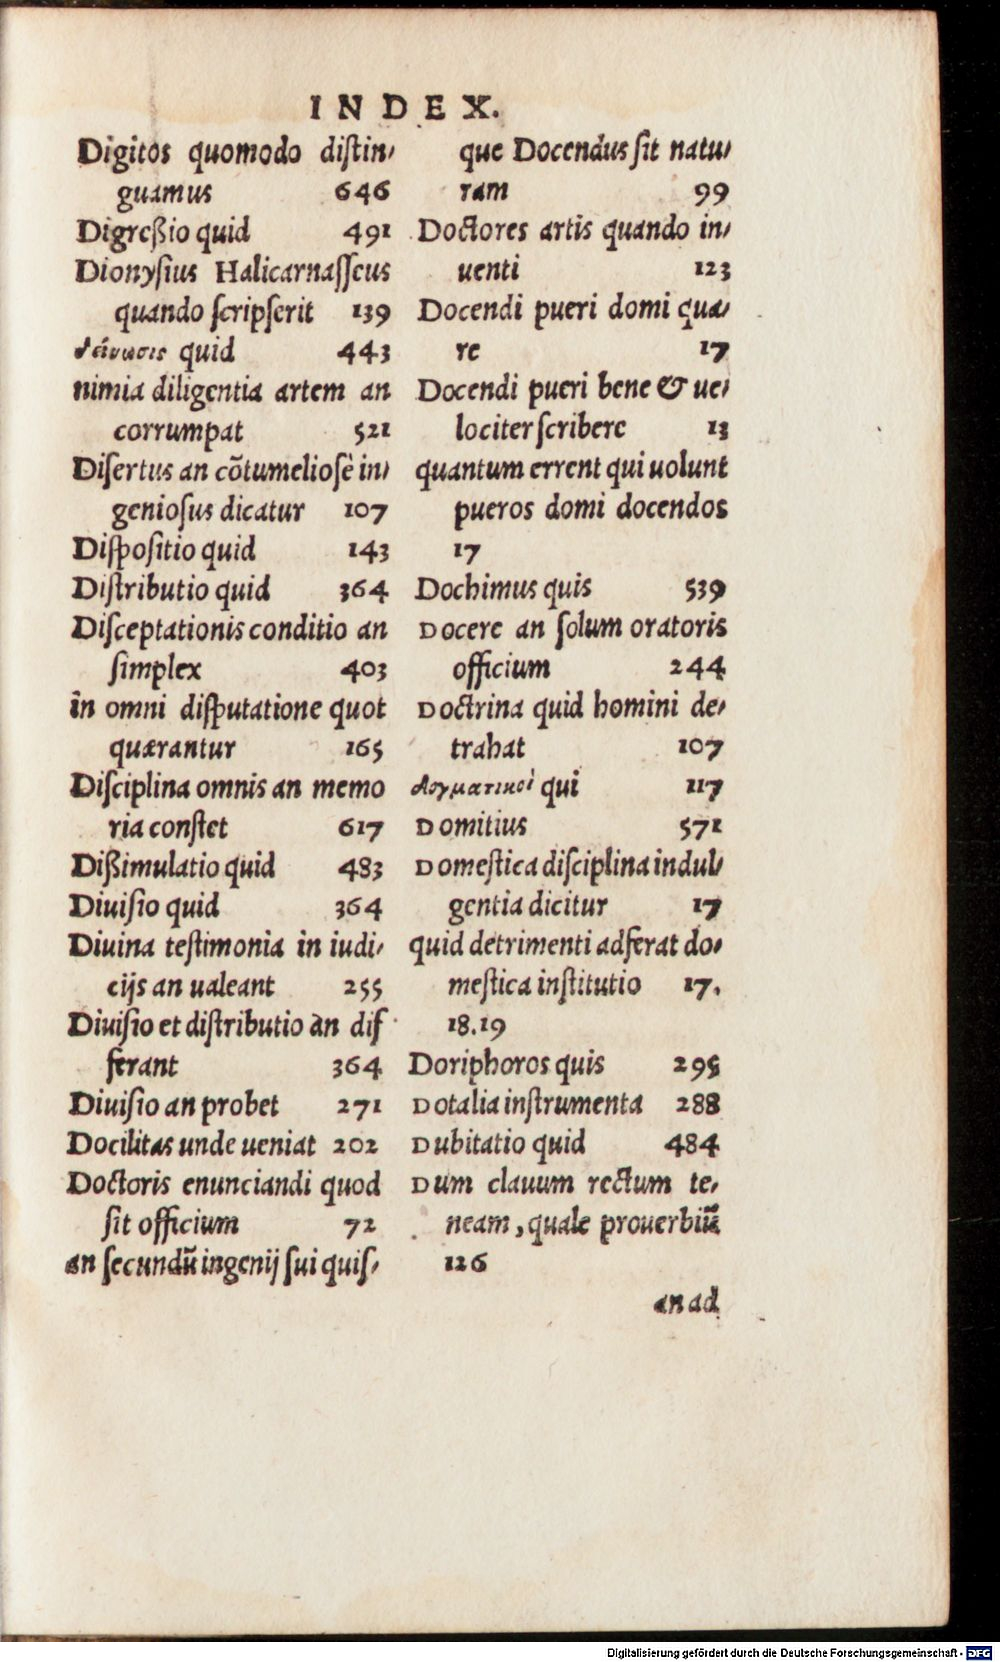 INDEX.
Digitos quomodo distin-
guamus 646
Digreßio quid 491
Dionysius Halicarnasseus
quando scripserit 139
δείνωσις quid 443
nimia diligentia artem an
corrumpat 521
Disertus an cōtumeliosè in-
geniosus dicatur 107
Dispositio quid 143
Distributio quid 364
Disceptationis conditio an
simplex 403
in omni disputatione quot
quærantur 165
Disciplina omnis an memo
ria constet 617
Dißimulatio quid 483
Diuisio quid 364
Diuina testimonia in iudi-
cijs an ualeant 255
Diuisio et distributio an dif
ferant 364
Diuisio an probet 271
Docilitas unde ueniat 202
Doctoris enunciandi quod
sit officium 72
an secundū ingenij sui quis-
que Docendus sit natu-
ram 99
Doctores artis quando in-
uenti 123
Docendi pueri domi qua-
re 17
Docendi pueri bene & ue-
lociter scribere 13
quantum errent qui uolunt
pueros domi docendos
17
Dochimus quis 539
Docere an solum oratoris
officium 244
Doctrina quid homini de-
trahat 107
δογματικοὶ qui 117
Domitius 571
Domestica disciplina indul-
gentia dicitur 17
quid detrimenti adferat do-
mestica institutio 17.
18.19
Doriphoros quis 295
Dotalia instrumenta 288
Dubitatio quid 484
Dum clauum rectum te-
neam, quale prouerbiū
126
an ad
Digitalisierung gefördert durch die Deutsche Forschungsgemeinschaft - DFG